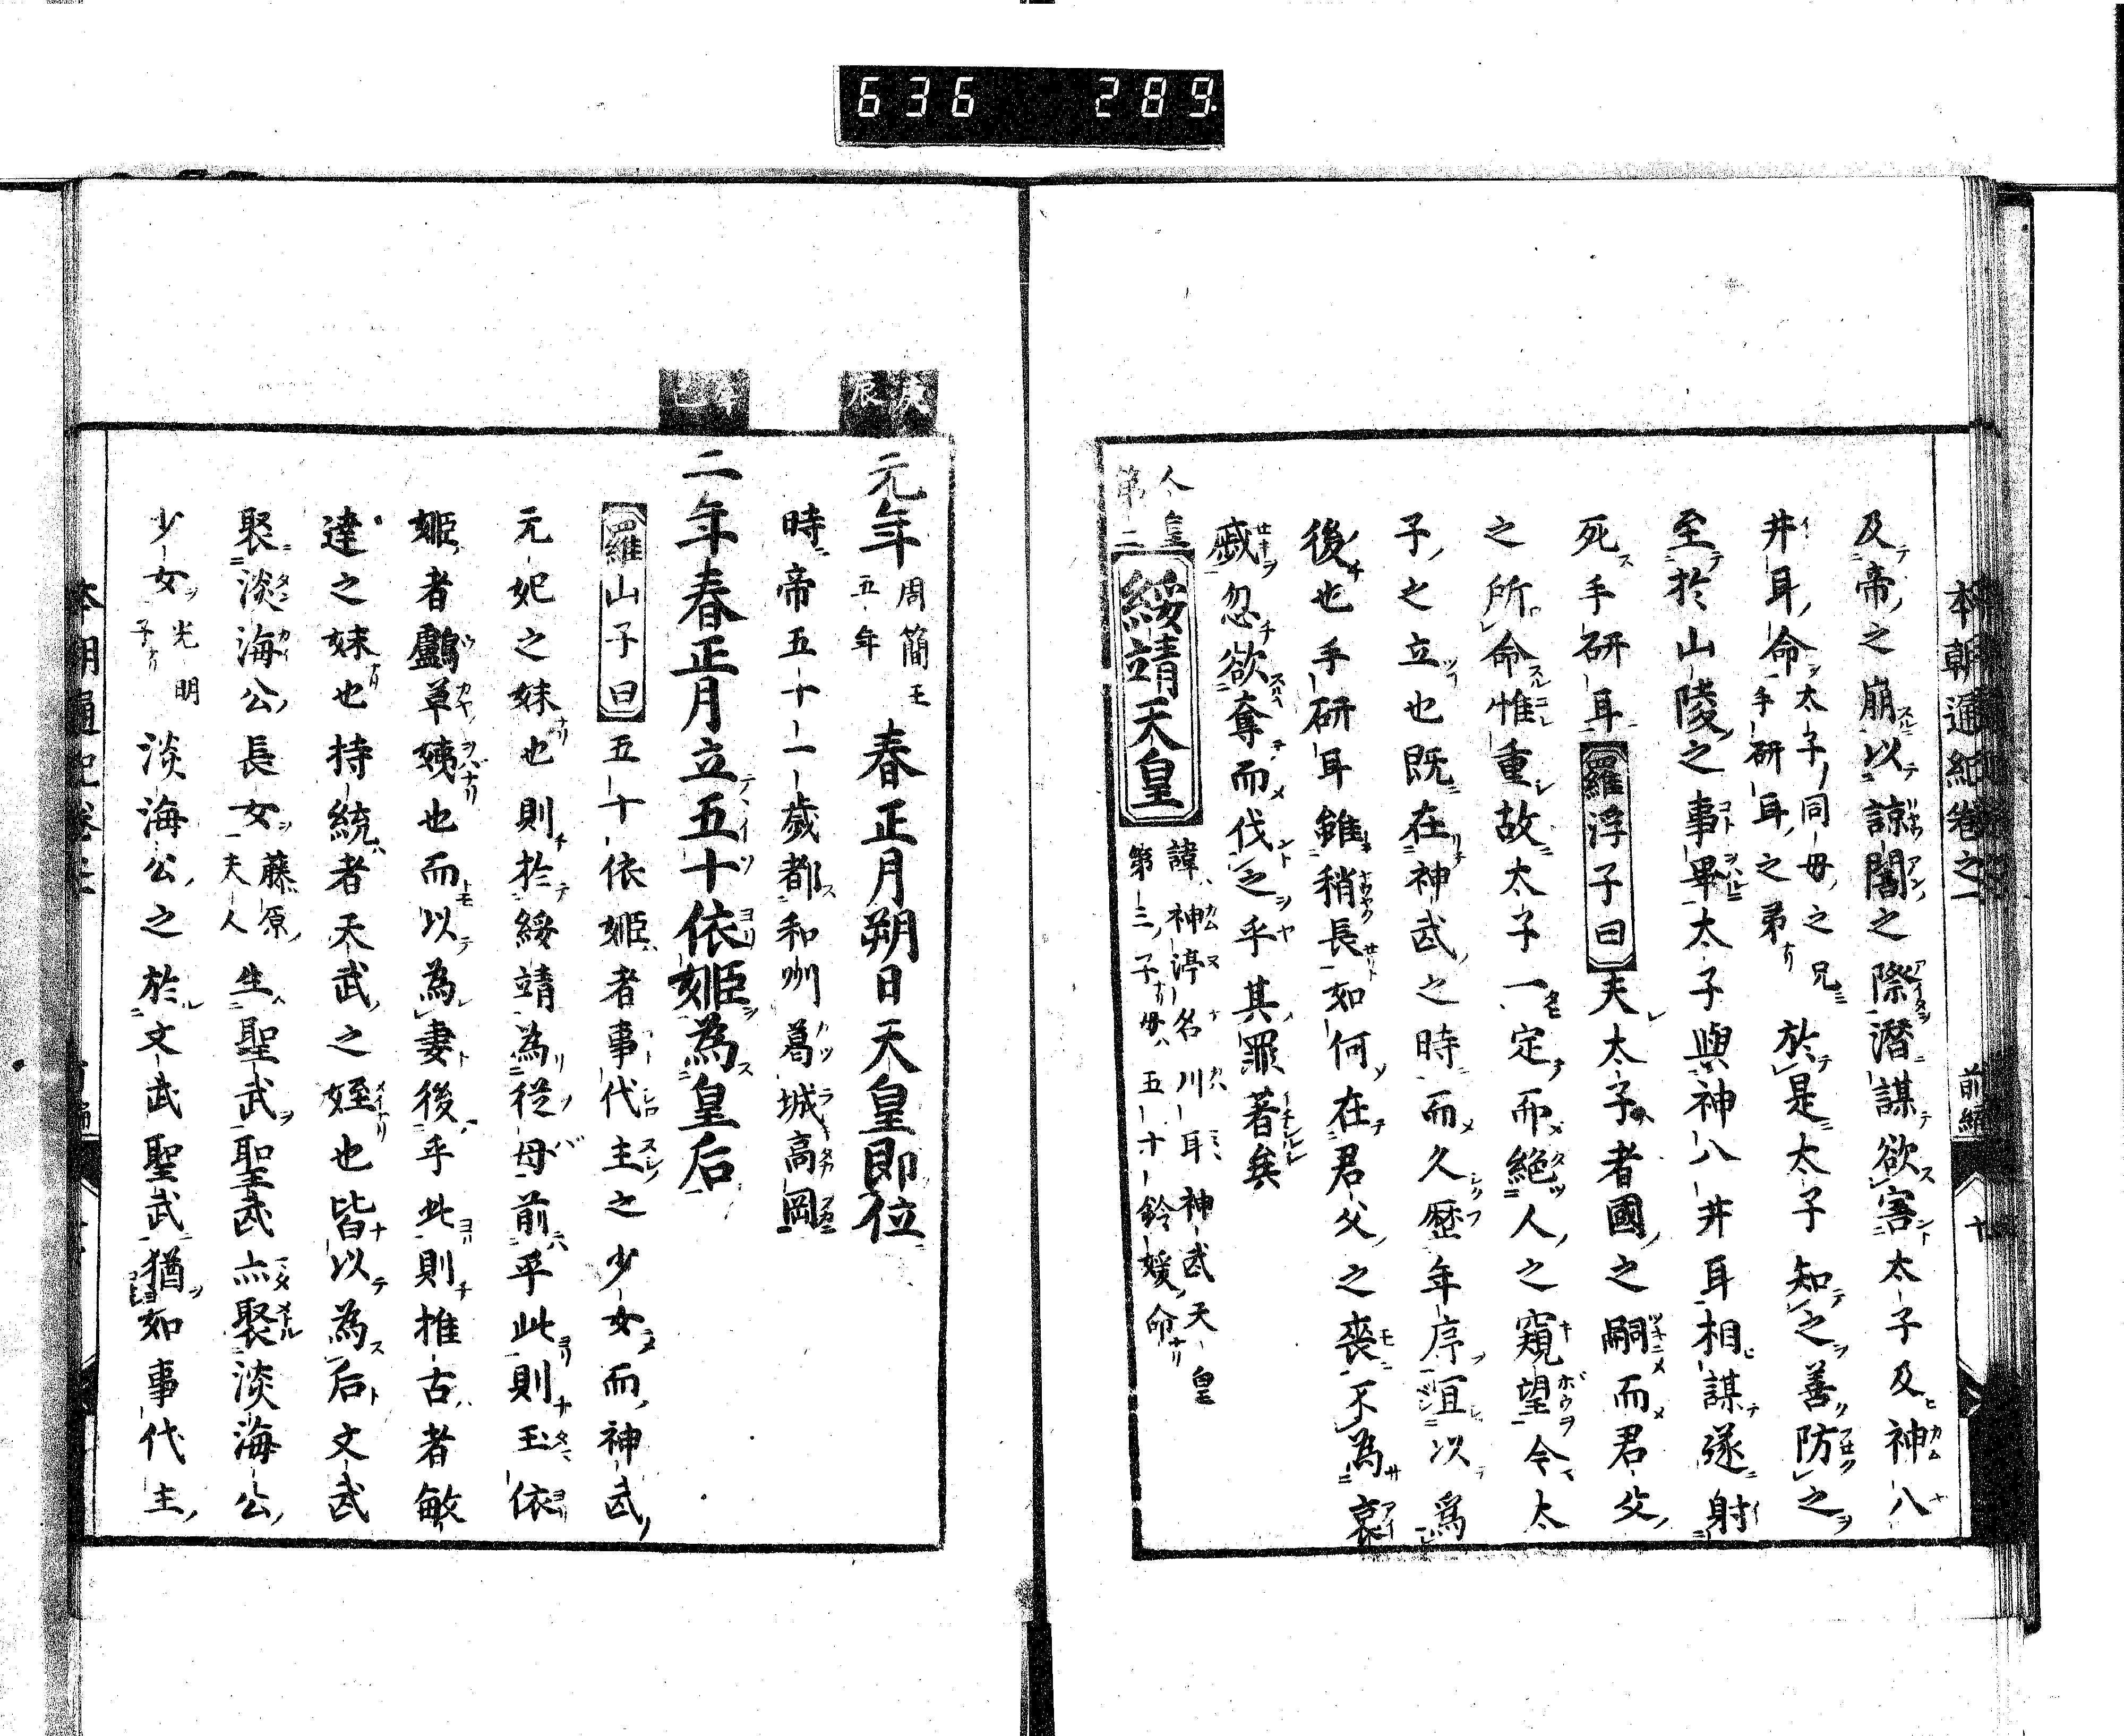 636 289
本朝通紀卷之一 前編 十
及帝之崩以諒闇之際潛謀欲害太子及神八
井耳命太子同母之兄手研耳之弟於是太子知之善防之
至於山陵之事畢太子與神八井耳相謀遂射
死手研耳羅浮子曰夫太子者國之嗣而君父
之所命惟重故太子一定而絕人之窺望今太
子之立也既在神武之時而久歷年序宜以爲
後也手研耳雖稍長如何在君父之喪不為哀
戚忽欲奪而伐之乎其罪著矣
人皇第二
綏靖天皇
諱神渟名川耳神武天皇
第三子母五十鈴媛命
庚辰
元年周簡王五年春正月朔日天皇即位
時帝五十一歲都和州葛城高岡
辛巳
二年春正月立五十依姬為皇后
羅山子曰五十依姬者事代主之少女而神武
元妃之妹也則於綏靖為從母前乎此則玉依
姬者鸕草姨也而以為妻後乎此則推古者敏
達之妹也持統者天武之姪也皆以為后文武
娶淡海公長女藤原夫人生聖武聖武亦娶淡海公
少女光明子淡海公之於文武聖武猶如事代主